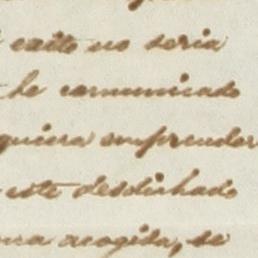 exito no seria
he comunicado
quiera emprender
este desdichado
una acogida, se